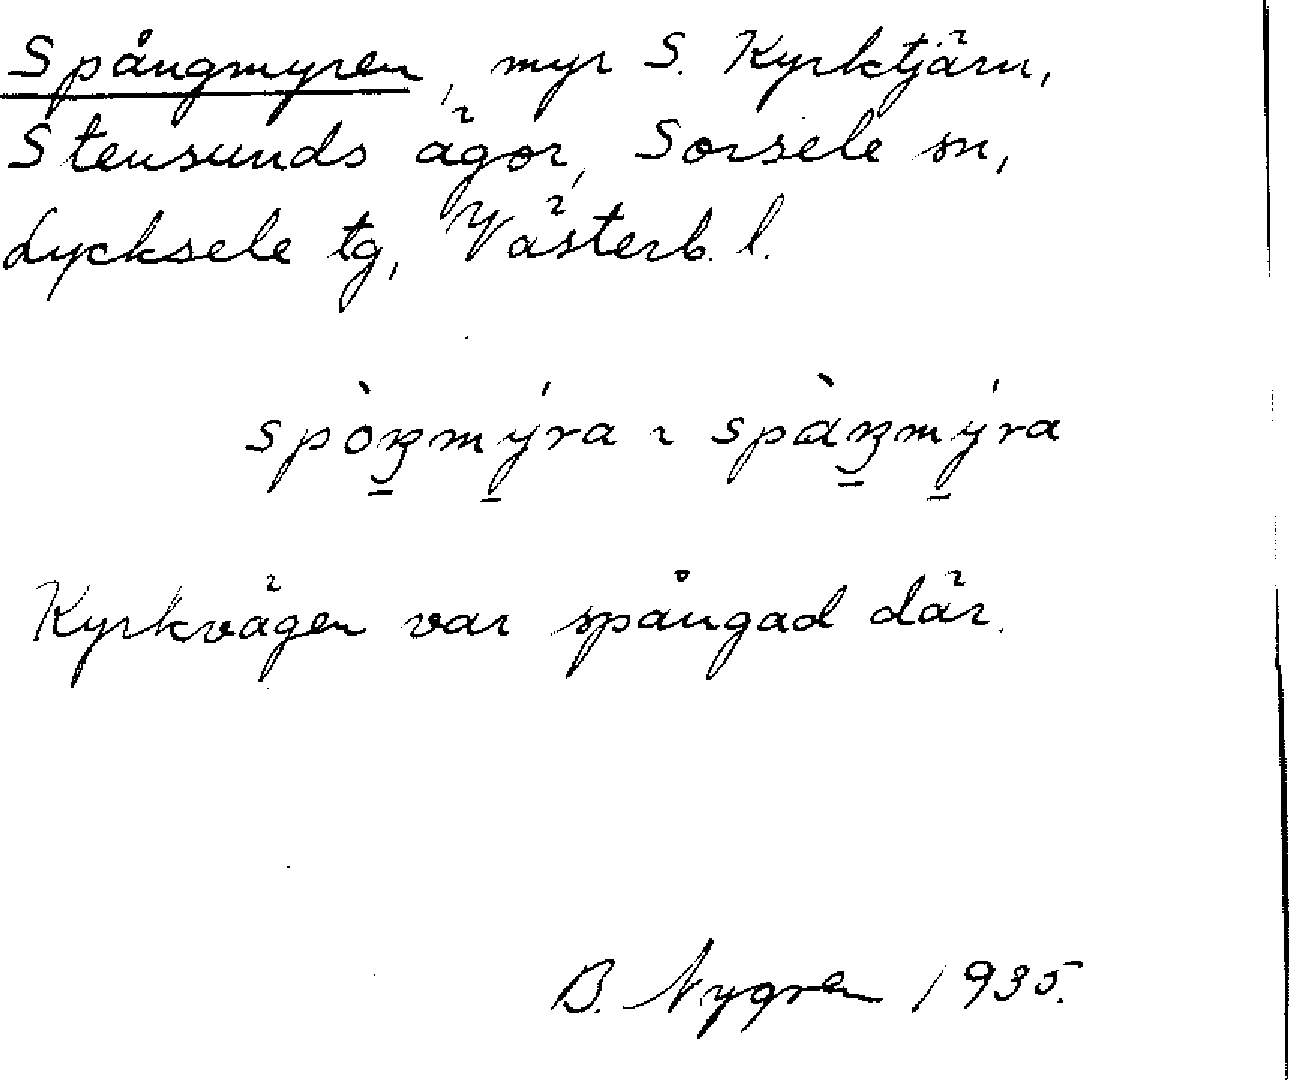 Spångmyren, myr S. Kyrktjärn,
Stensunds ägor, Sorsele sn,
Lycksele tg, Västerb. l.
spòŋmýra ~ spàŋmýra
Kyrkvägen var spångad där.
B. Nygren 1935.